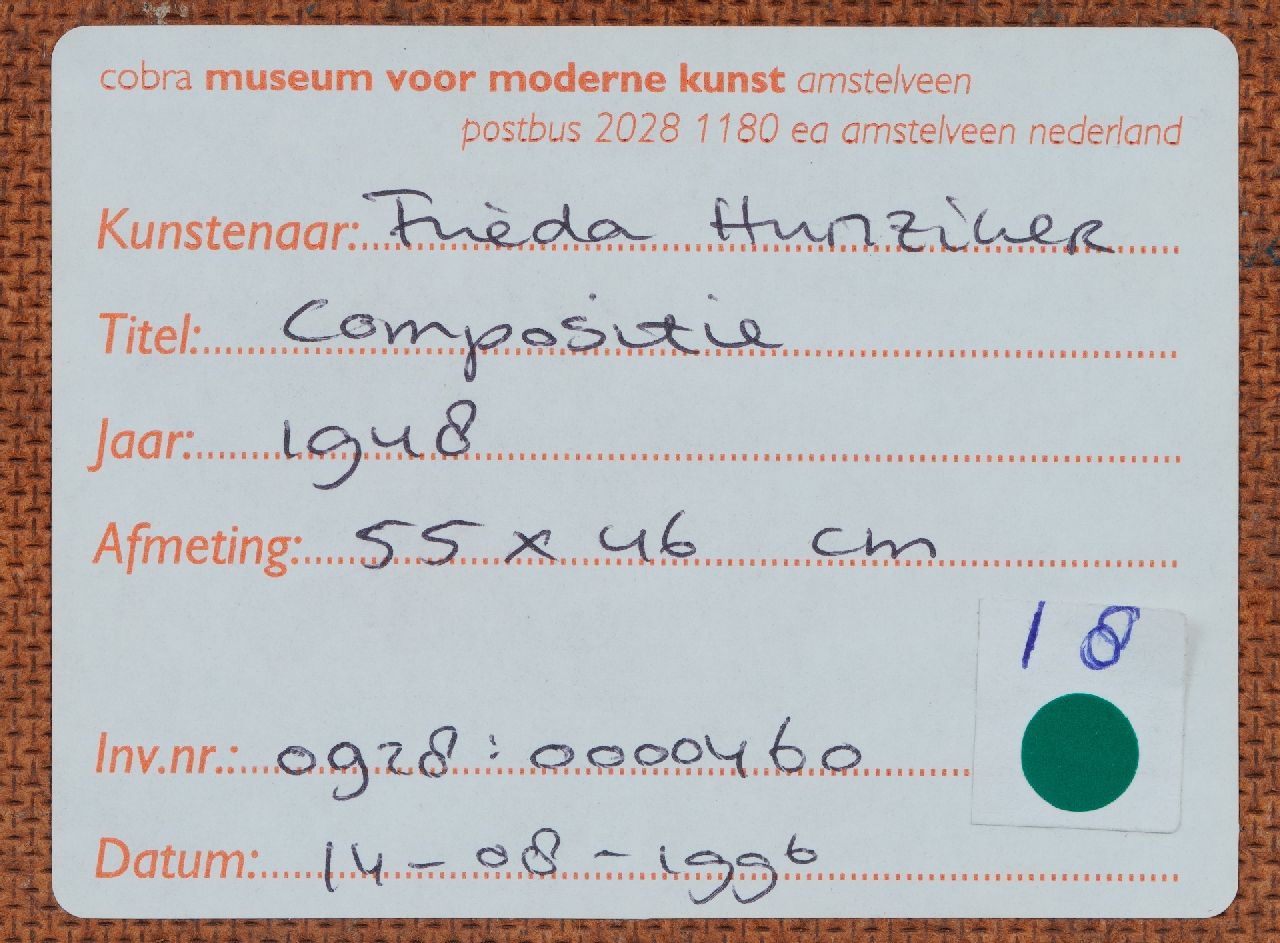 cobra museum voor moderne kunst amstelveen
postbus 2028 1180 ea amstelveen nederland
Kunstenaar: Frièda Hunziker
Titel: Compositie
Jaar: 1948
Afmeting: 55 x 46 cm
18
Inv.nr.: 0928:0000460
Datum: 14-08-1996